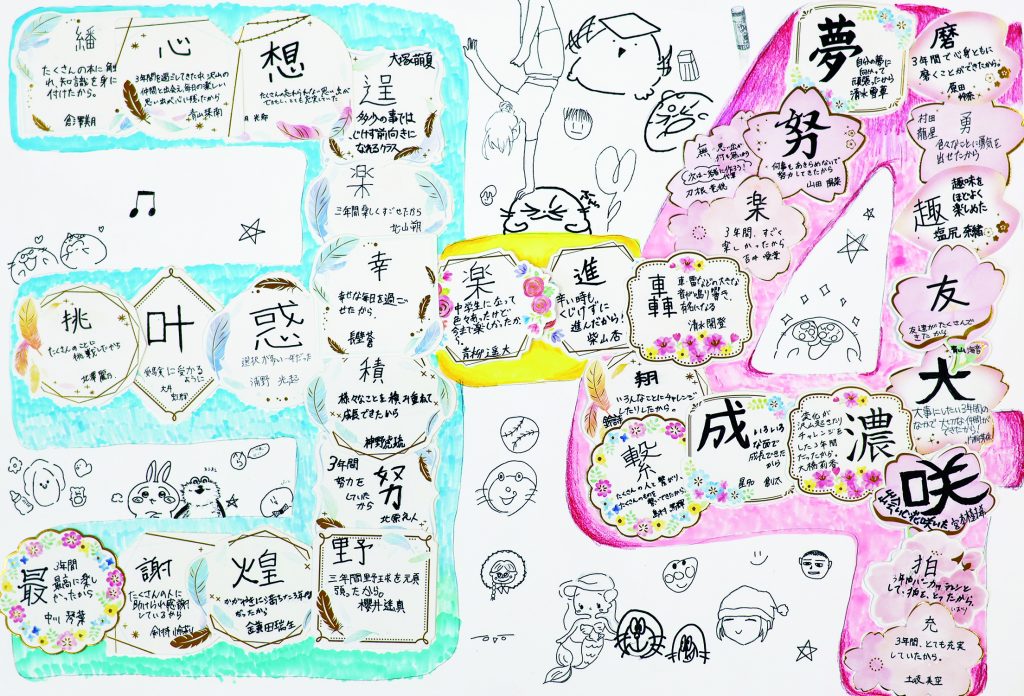 繙
たくさんの本に触
れ、知識を身に
付けたから。
心
3年間を過ごしてきた中、沢山の
仲間と出会え、毎日の楽しい
思い出が心に残ったから
想
大塚萌夏
逞
多少の事では
くじけず前向きに
なれるクラス
楽
三年間楽しくすごせたから
北山 朔
幸
幸せな毎日を過ご
せたから。
挑
たくさんのことに
挑戦したから
叶
合格実に受かる
ように
惑
選択が多い一年だった
浦野 光起
積
様々なことを積み重ねて
成長できたから
神野虎琉
3年間
努力を
していた
から
努
最
3年間
最高に楽し
かったから
中川 琴葉
謝
たくさんの人に
助けられ感謝
しているから
煌
かがやきに満ちた3年間
だったから
鎌田瑞生
野
三年間野球を頑
張ったから。
櫻井達真
楽
中学生になって
色々あったけど
今まで楽しかったから。
青柳 遥大
進
辛い時も、
くじけずに
進んだから!
柴山 杏
轟
車・雷などの大きな
音が鳴り響き、
有名になる
清水開登
翔
いろんなことにチャレンジ
したりしたから。
繋
たくさんの人と繋がり、
たくさんのものを
繋いできたから。
成
いろいろ
な面で
成長できた
から
星加 創太
濃
変化が
沢山起きたり
チャレンジを
した3年間
だったから。
大橋莉香
夢
自分の夢に
向かって
頑張ったから
清水雪華
磨
3年間で心身ともに
磨くことができたから。
努
何事もあきらめないで
努力してきたから
山田 陽菜
村田
龍星
勇
色々なことに勇気を
出せたから
無
楽
3年間、すごく
楽しかったから
趣
趣味を
ほどよく
楽しめた
塩尻 奈緒
友
友達がたくさんで
きたから
青山 海音
大
大事にしたい3年間の
なかで大切な仲間が
できたから!
咲
宮本桂瑚
拍
充
3年間、とても充実
していたから。
土岐 美空